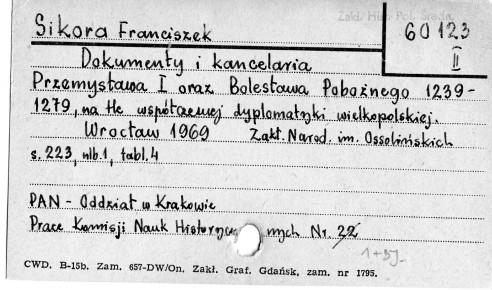 Zakł. Hist. Pol. Średn.
Sikora Franciszek
60123
II
Dokumenty i kancelaria
Przemysława I oraz Bolesława Pobożnego 1239-
1279, na tle współczesnej dyplomatyki wielkopolskiej.
Wrocław 1969 Zakł. Narod. im. Ossolińskich
s. 223, nlb. 1, tabl. 4
PAN - Oddział w Krakowie
Prace Komisji Nauk Historycznych Nr. 22
CWD. B-15b. Zam. 657-DW/On. Zakł. Graf. Gdańsk, zam. nr 1795.